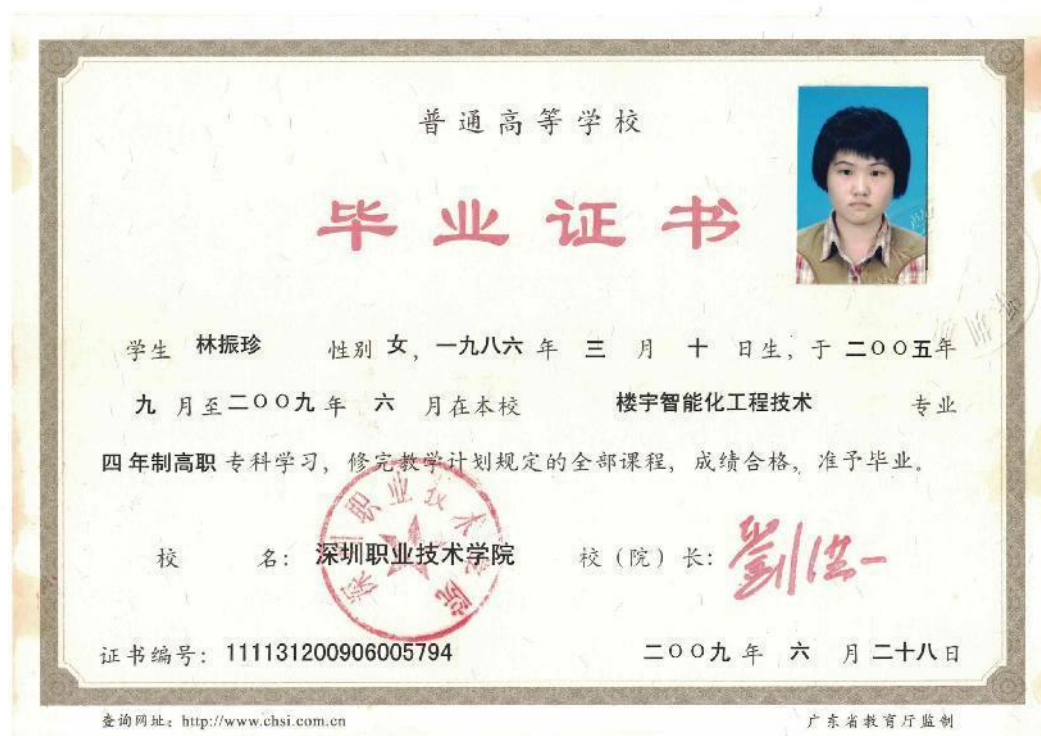 普通高等学校
毕业证书
学生 林振珍 性别 女，一九八六 年 三 月 十 日生，于 二〇〇五年
九 月至二〇〇九 年 六 月在本校 楼宇智能化工程技术 专业
四 年制高职 专科学习，修完教学计划规定的全部课程，成绩合格，准予毕业。
深圳职业技术学院
校 名：深圳职业技术学院 校（院）长：劉洪一
证书编号：111131200906005794 二〇〇九 年 六 月 二十八 日
查询网址：http://www.chsi.com.cn 广东省教育厅监制